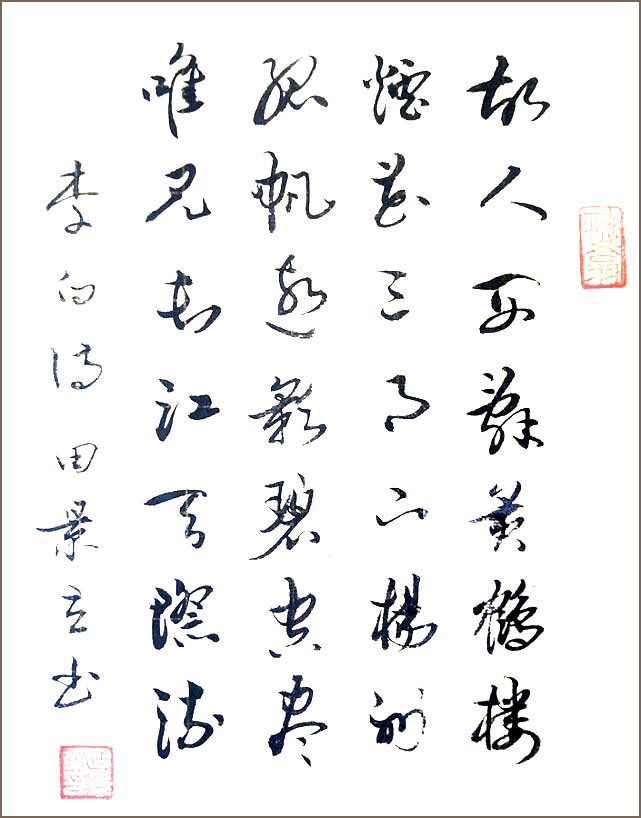 故人西辞黄鹤楼
烟花三月下楊州
孤帆远影碧空尽
唯见长江天际流
李白诗田景立书